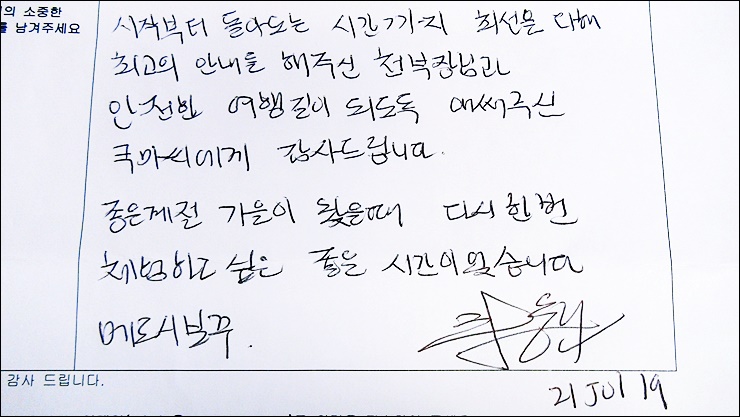 의 소중한
를 남겨주세요
시작부터 돌아오는 시간까지 최선을 다해
최고의 안내를 해주신 천부장님과
안전한 여행길이 되도록 애써주신
쿠마씨에게 감사드립니다.
좋은계절 가을이 왔을때 다시한번
체험하고 싶은 좋은 시간이었습니다
메르시보꾸.
감사 드립니다.
21 JUl 19